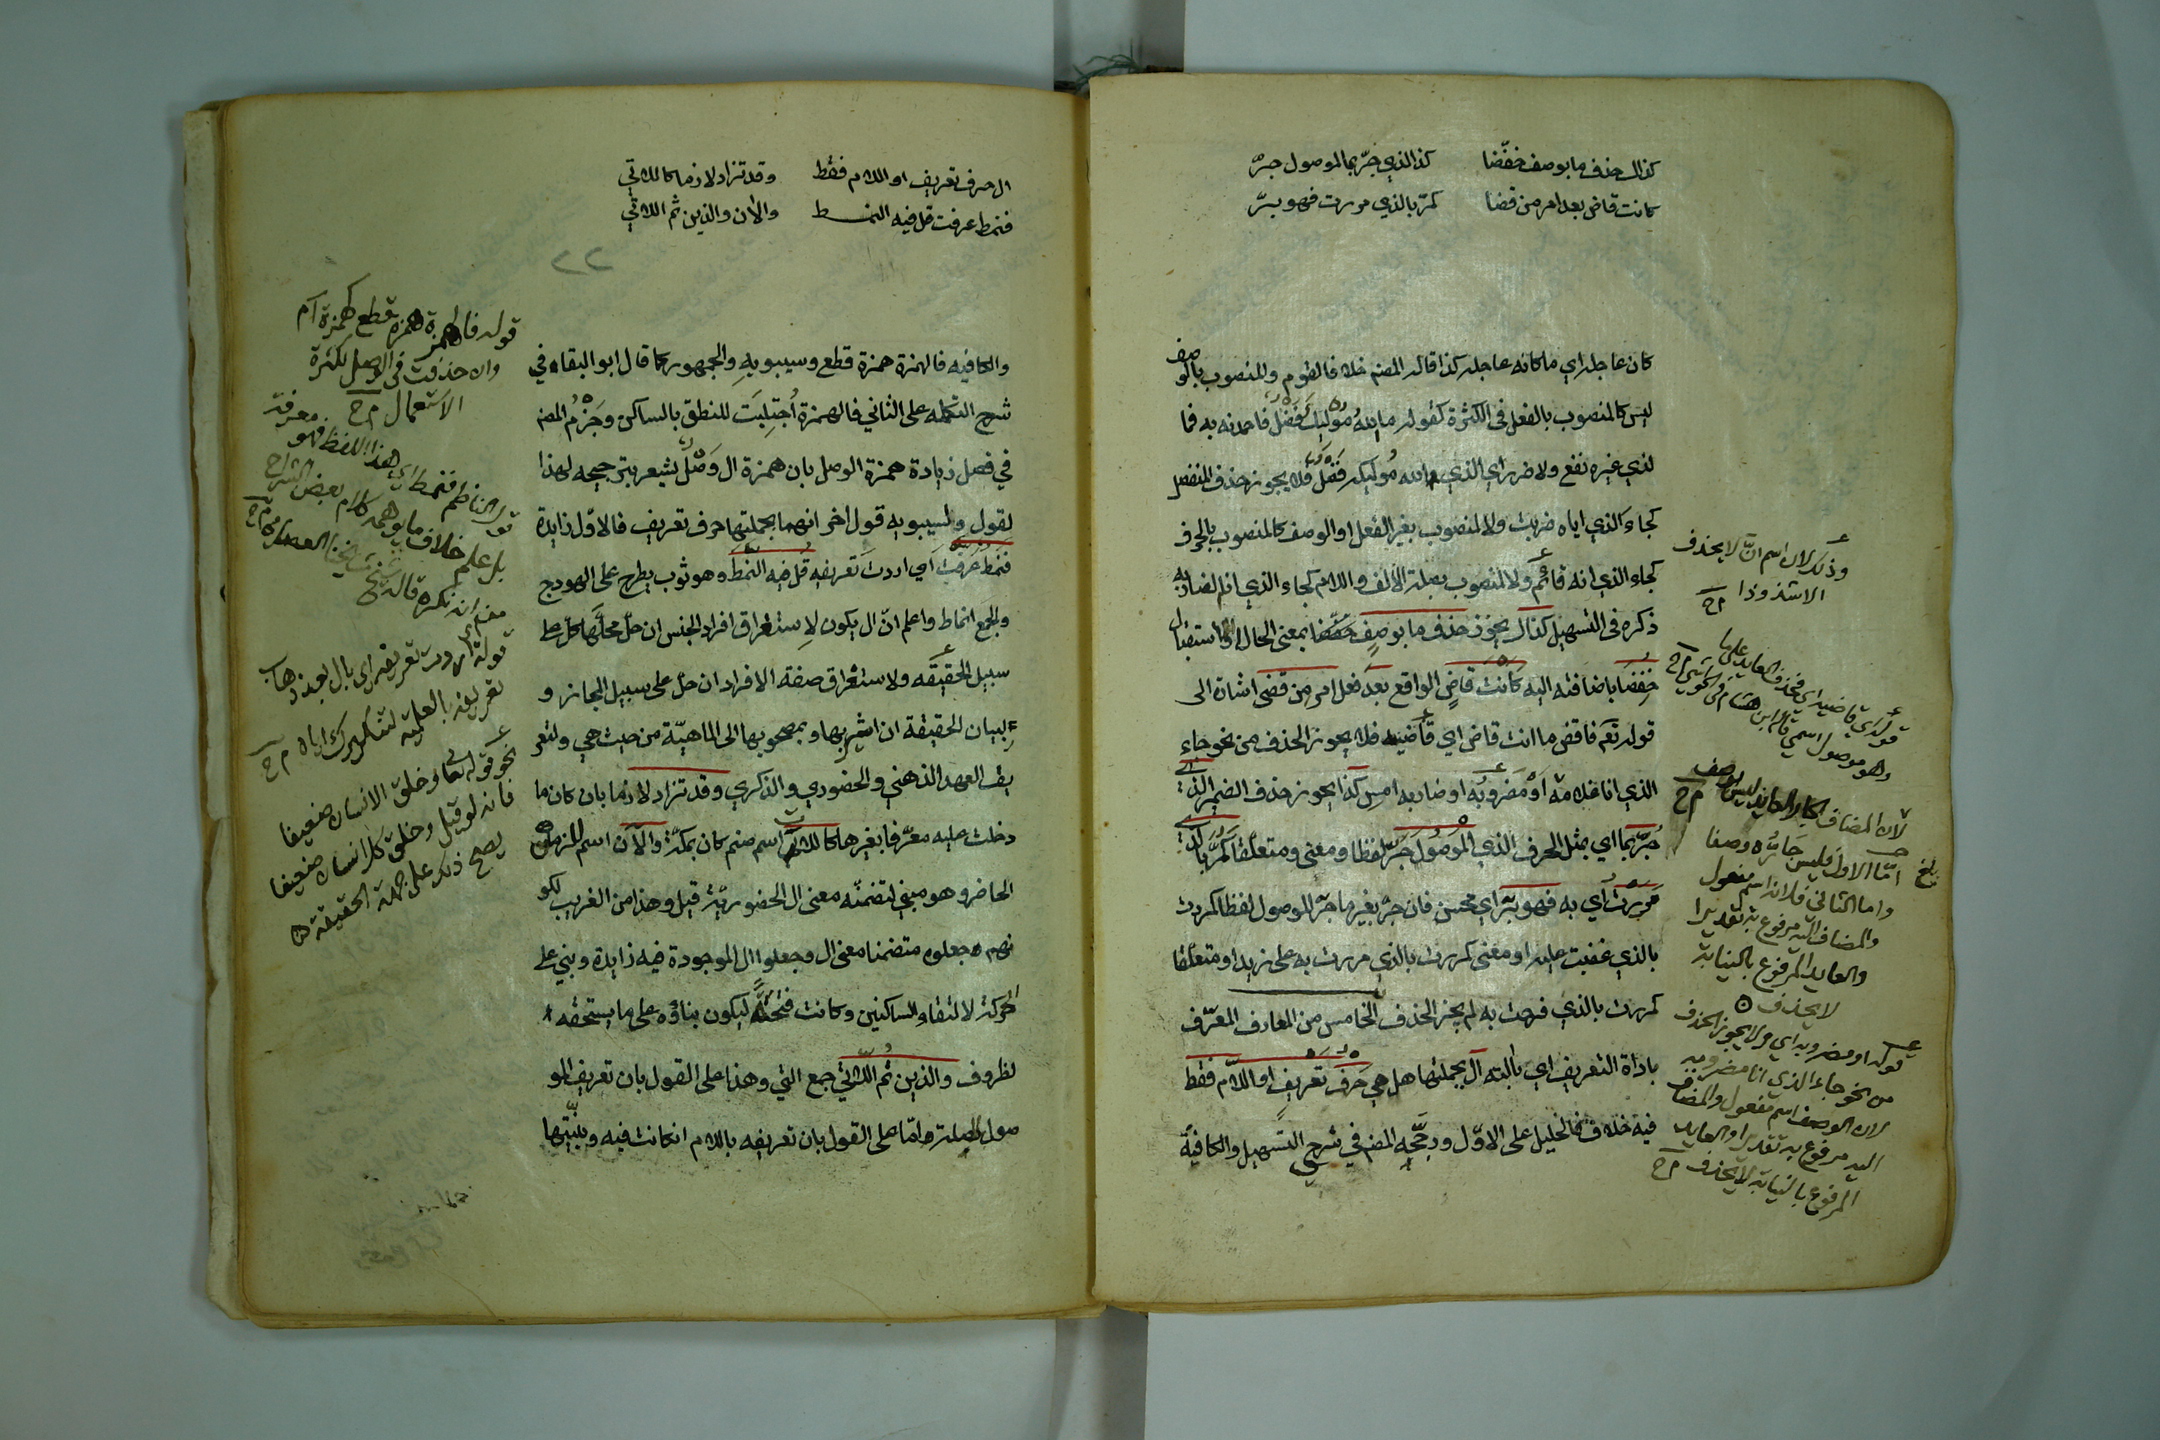 كذاك حذف ما بوصف خفضا كذا الذي جرّ بما الموصول جرّ
كانت قاض بعد امر من قضا كمرّ بالذي مررت فهو برّ
كان عاجل اي ما كانه عاجل كذا قاله المصنم خلافا لقوم والمنصوب بالوصف
ليس كالمنصوب بالفعل في الكثرة كقوله ما الله مُوليك فَضْل فاحمدنه به فما
لذي غيره نفع ولا ضرر اي الذي الله مُوليكه فَضْل فلا يجوز حذف المنفصل
كجاء الذي اياه ضربت ولا المنصوب بغير الفعل او الوصف كالمنصوب بالحرف
كجاء الذي انه قائم ولا المنصوب بصلة الالف واللام كجاء الذي انا لضاربه
ذكره في التسهيل كذاك يجوز حذف ما بوصف بمعنى الحال او الاستقبال
خفضا باضافته اليه كانت قاض الواقع بعد فعل امر من قضى اشارة الى
قوله تعم فاقض ما انت قاض اي قاضيه فلا يجوز الحذف من نحو جاء
الذي انا غلامه او مضروبه او ضاربه امس كذا يجوز حذف الضمير الذي
جُرّ بما اي بمثل الحرف الذي الموصول جرّ لفظا ومعنى ومتعلقا كمرّ بالذي
مررت اي به فهو برّ اي محسن فان جرّ بغير ما جرّ الموصول لفظا كمررت
بالذي غضبت عليه او معنى كمررت بالذي مررت به على زيد او متعلقا
كمررت بالذي فرحت به لم يجز الحذف الخامس من المعارف المعرّف
باداة التعريف اي بالته ال بجملتها هل هي حرف تعريف او اللام فقط
فيه خلاف فالخليل على الاوّل ورجّحه المصم في شرح التسهيل والكافية
وذلك لان اسم انّ لا يحذف
الا شذوذا م ح
قوله اي قاضيه اي فحذف العايد على ما
وهو موصول اسمي قاله ابن هشام في م ح
لان المضاف اليه العايد ليس بوصف م ح
امّا الاول فليس جائزه وصفا
واما الثاني فلانه اسم مفعول
والمضاف اليه مرفوع به تقديرا
والعايد المرفوع بالنيابة
لا يحذف
قوله او مضروبه اي ولا يجوز الحذف
من نحو جاء الذي انا مضروبه
لان الوصف اسم مفعول والمضاف
اليه مرفوع به تقديرا والعايد
المرفوع بالنيابة لا يحذف م ح
ال حرف تعريف او اللام فقط وقد تزاد لازما كاللاتي
فنمط عرفت قل فيه النمط والآن والذين ثم اللاتي
٢٢
والكافيه فالهمزة همزة قطع وسيبويه والجمهور كما قال ابو البقاء في
شرح التكمله على الثاني فالهمزة اُجتلبَت للنطق بالساكن وجَزْمُ المصم
في فصل زيادة همزة الوصل بان همزة ال وَصْل يشعر بترجيحه لهذا
لقول ولسيبويه قول اخر انها بجملتها حرف تعريف فالاوّل زايدة
فنمط عرفت اي اردت تعريفه قل فيه النمط وهو ثوب يطرح على الهودج
والجمع انماط واعلم انّ ال يكون لاستغراق افراد الجنس ان حلّ محلّها كل على
سبيل الحقيقه ولاستغراق صفة الافراد ان حلّ على سبيل المجاز و
لبيان الحقيقة ان اشير بها وبمصحوبها الى الماهيّة من حيث هي ولتعر
يف العهد الذهني والحضوري والذكري وقد تزاد لازما بان كان ما
دخلت عليه معرّفا بغيرها كاللات اسم صنم كان بمكة والآن اسم للزمن
الحاضر وهو مبني لتضمنه معنى ال الحضورية قيل وهذا من الغريب لكو
نهم جعلوه متضمنا معنى ال وجعلوا ال الموجودة فيه زايدة وبني على
الحركة لالتقاء الساكنين وكانت فتحة ليكون بناؤه على ما يستحقه
لظروف والذين ثم اللاتي جمع التي وهذا على القول بان تعريف المو
صول بالصلة وامّا على القول بان تعريفه باللام ان كانت فيه وبنيّتها
قوله فالهمزة همزة قطع كهمزة ام
وان حذفت في الوصل لكثرة
الاستعمال م ح
قول الناظم فنمط اي هذا اللفظ فهو معرفة
بل علم خلاف ما يوهمه كلام بعض الشراح
من انه نكرة قاله
قوله اردت تعريفه اي بال بعد ذهاب
تعريفه بالعلمية م ح
نحو قوله تعالى وخلق الانسان ضعيفا
فانه لو قيل وخلق كل انسان ضعيفا
يصح ذلك على جهة الحقيقة